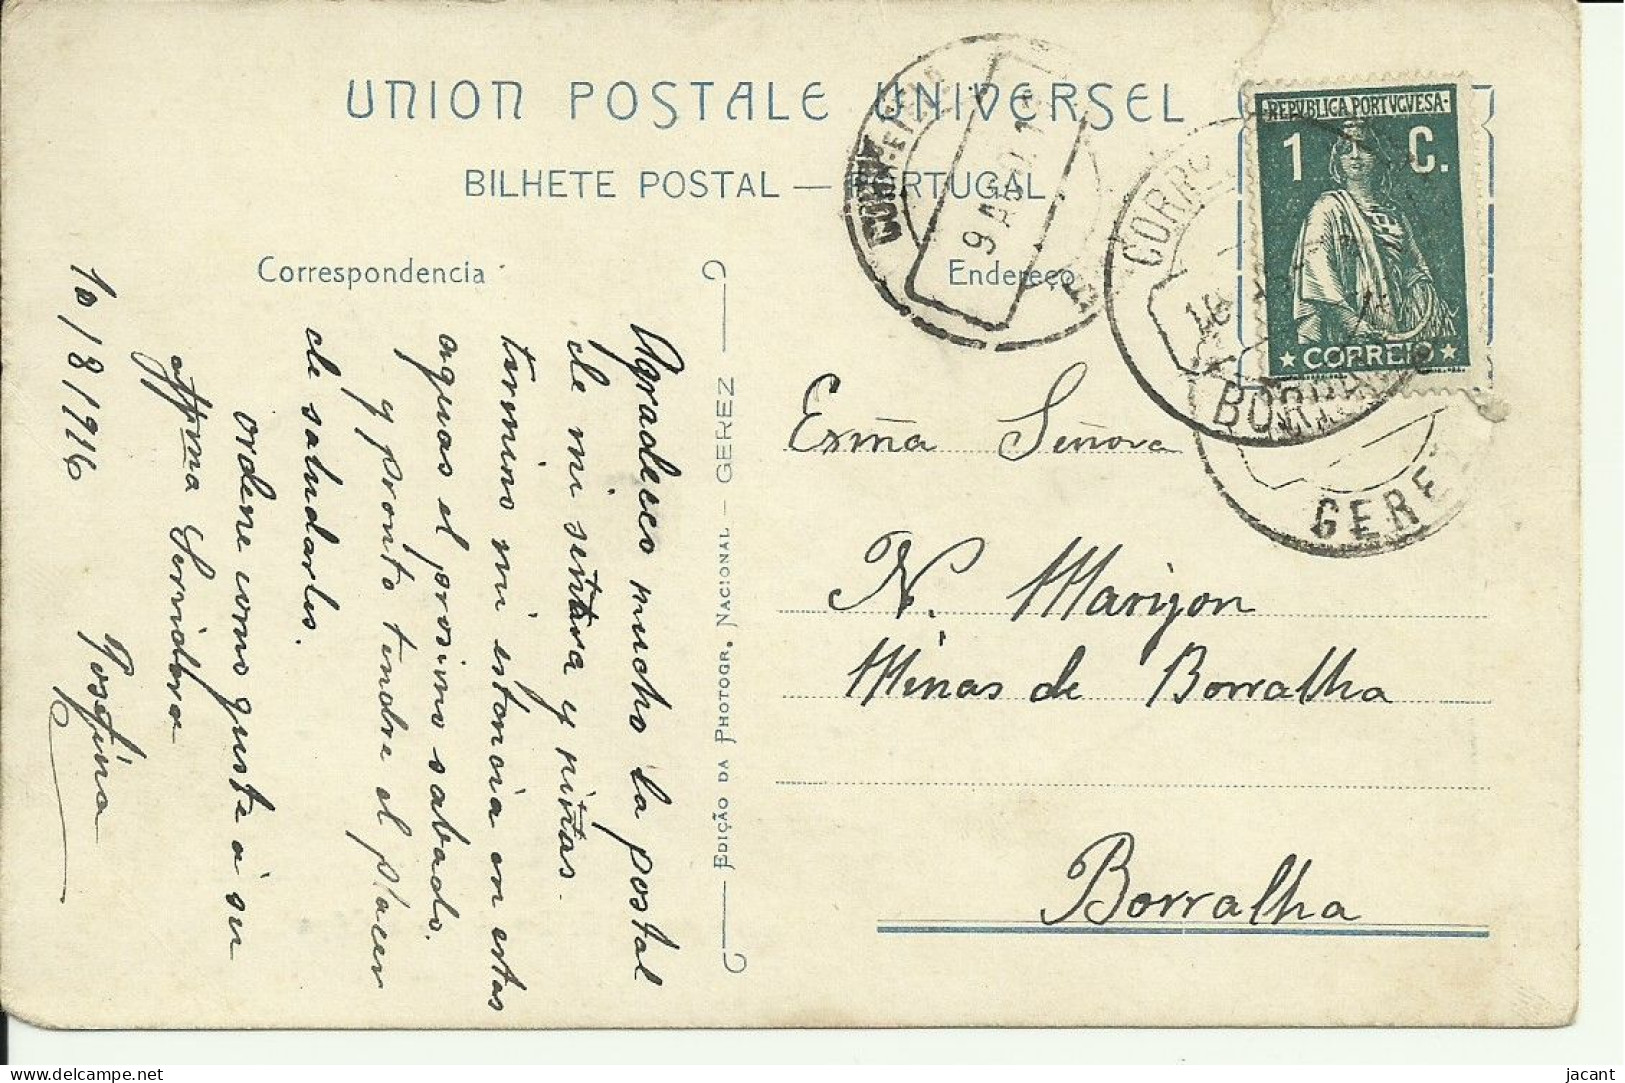 UNION POSTALE UNIVERSEL
BILHETE POSTAL — PORTUGAL
Correspondencia
Endereço
REPVBLICA PORTVGVESA
1 C.
CORREIO
CORREIO
BORRALHA
GEREZ
9 AGO
EDIÇÃO DA PHOTOGR. NACIONAL — GEREZ
Agradeceo mucho la postal
de mi señora y niñas.
termino mi estancia en estas
aguas el prosimo sabado.
y pronto tendre el placer
de saludarles.
Ordene como guste á su
Affma Servidora
Josefina
10/8/916
Exmã Señora
N. Marijon
Minas de Borralha
Borralha
jacant